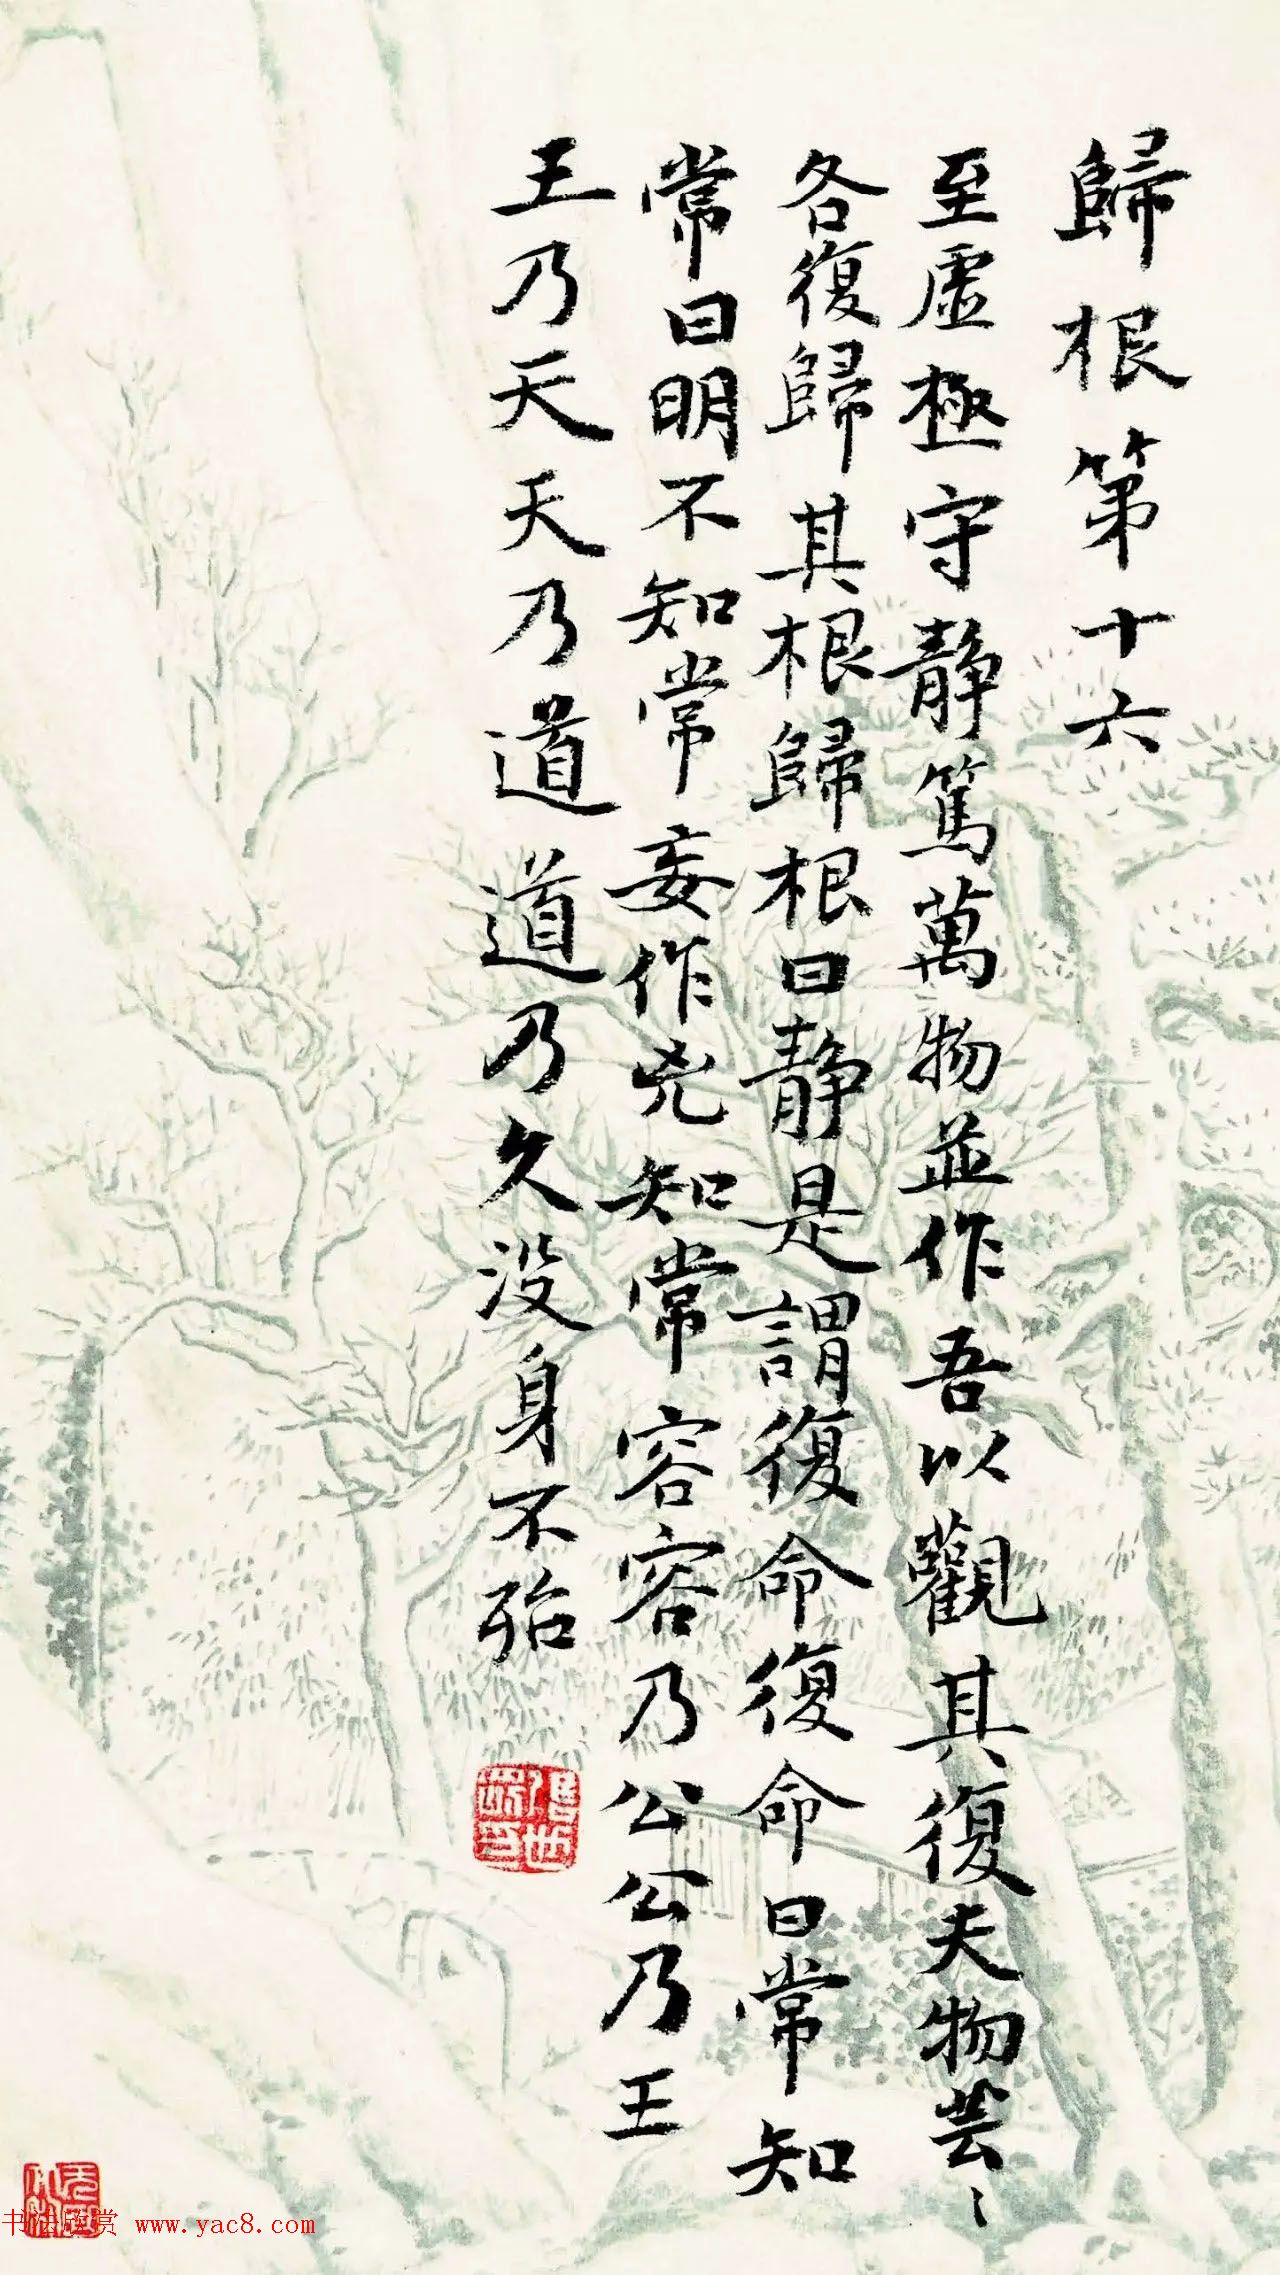 歸根第十六
至虛極守靜篤萬物並作吾以觀其復夫物芸〻
各復歸其根歸根曰靜是謂復命復命曰常知
常曰明不知常妄作兇知常容容乃公公乃王
王乃天天乃道道乃久没身不殆
书法欣赏 www.yac8.com